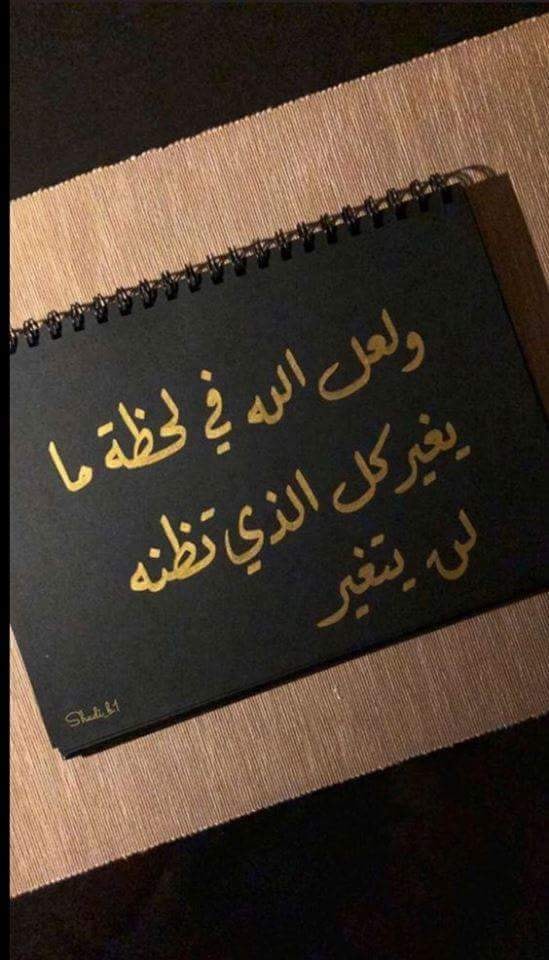 ولعل الله في لحظة ما
يغير كل الذي تظنه
لن يتغير